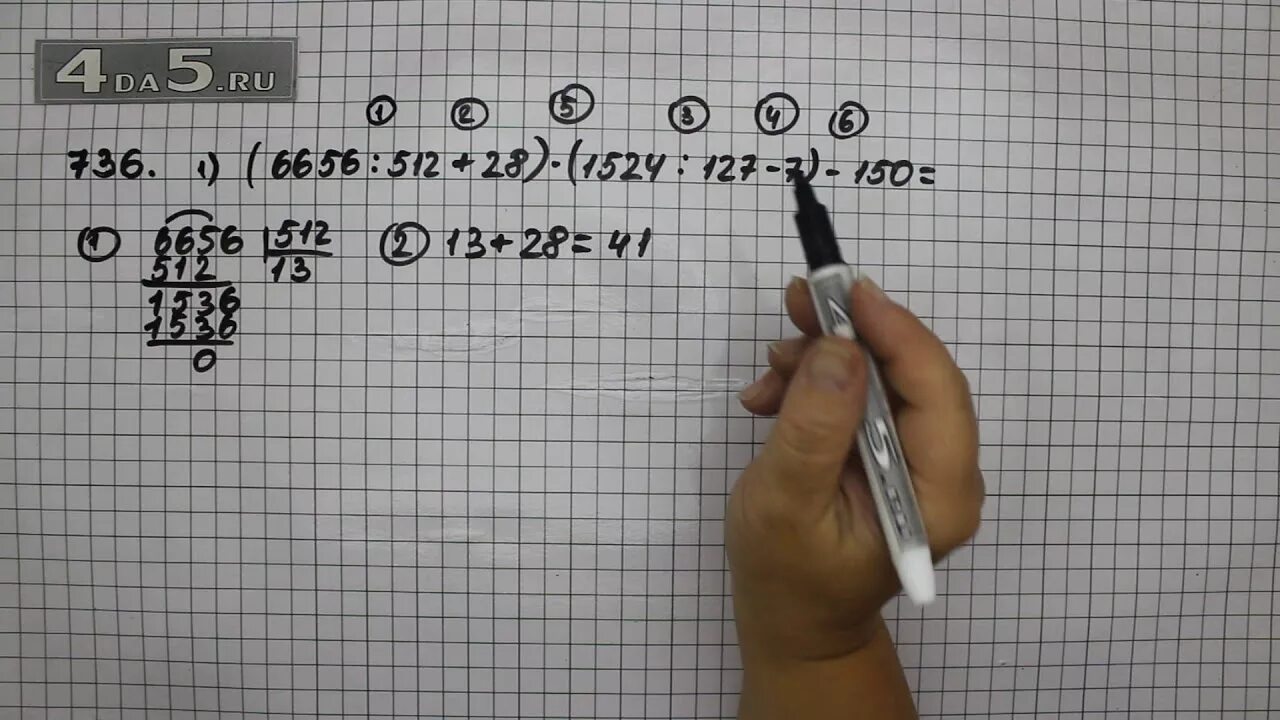 4DA5.RU
① ② ⑤ ③ ④ ⑥
736. 1) (6656 : 512 + 28) · (1524 : 127 - 7) - 150 =
① 6656 512 ② 13 + 28 = 41
512 13
1536
1536
0